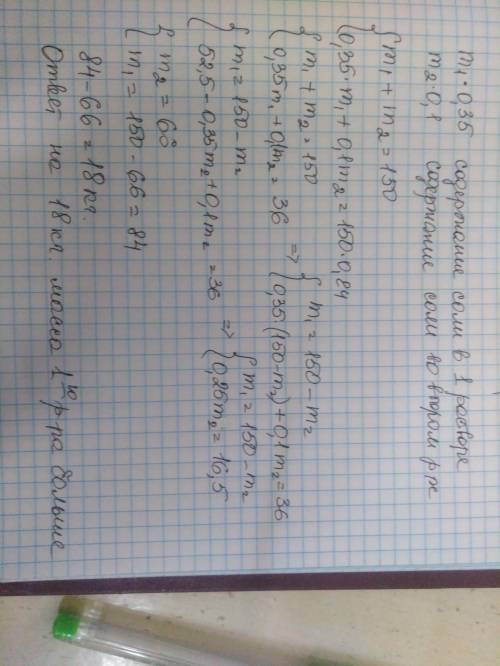 m₁·0,35 содержание соли в 1 растворе
m₂·0,1 содержание соли во втором р-ре
{ m₁ + m₂ = 150
{ 0,35·m₁ + 0,1m₂ = 150·0,84
{ m₁ + m₂ = 150 => { m₁ = 150 - m₂
{ 0,35m₁ + 0,1m₂ = 36 { 0,35·(150-m₂) + 0,1m₂ = 36
{ m₁ = 150 - m₂ => { m₁ = 150 - m₂
{ 52,5 - 0,35m₂ + 0,1m₂ = 36 { 0,25m₂ = 16,5
{ m₂ = 66
{ m₁ = 150 - 66 = 84
84 - 66 = 18 кг.
Ответ на 18 кг. масса 1го р-ра больше